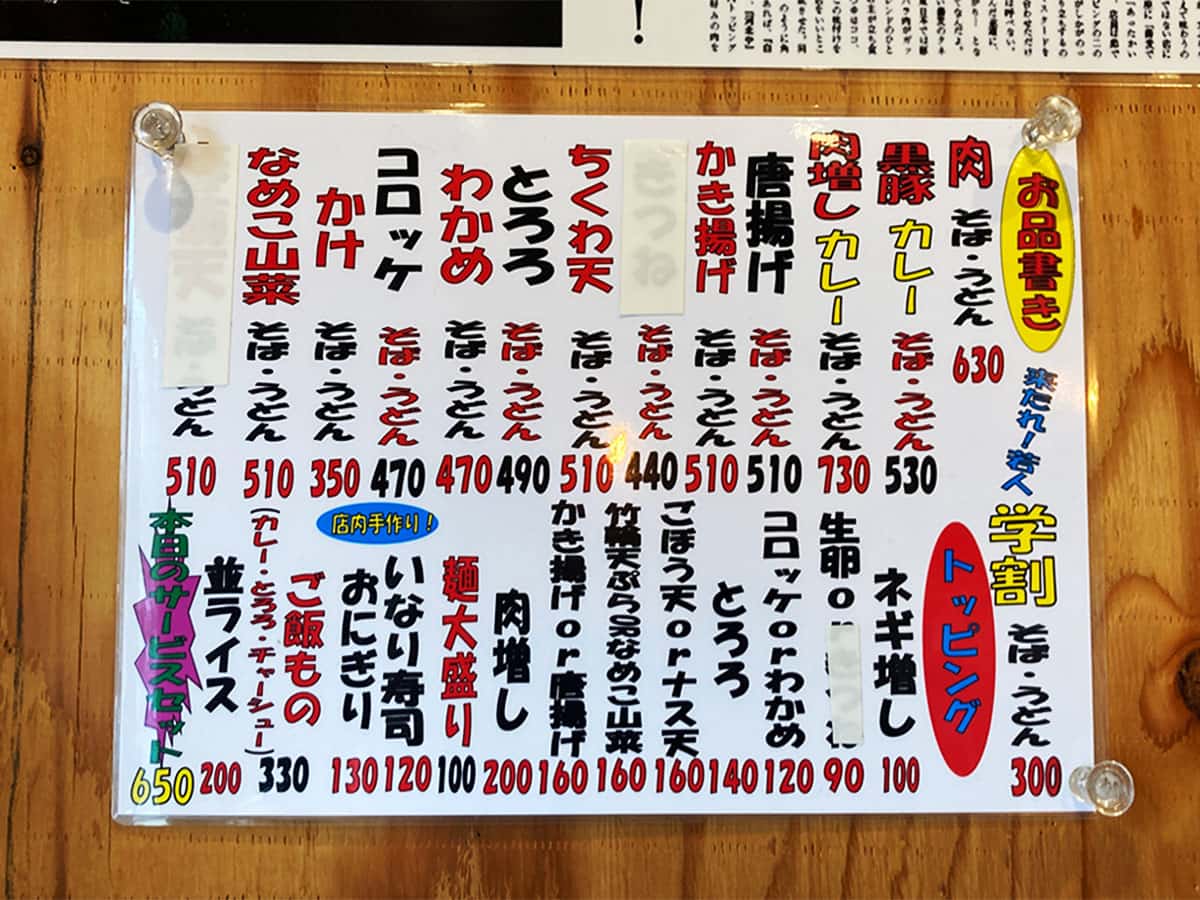 お品書き
肉 そば・うどん 630
黒豚カレー そば・うどん 530
肉増しカレー そば・うどん 730
唐揚げ そば・うどん 510
かき揚げ そば・うどん 510
きつね そば・うどん 440
ちくわ天 そば・うどん 510
とろろ そば・うどん 490
わかめ そば・うどん 470
コロッケ そば・うどん 470
かけ そば・うどん 350
なめこ山菜 そば・うどん 510
天 そば・うどん 510
来たれ!若人
学割 そば・うどん 300
トッピング
ネギ増し 100
生卵or 90
コロッケorわかめ 120
とろろ 140
ごぼう天orナス天 160
竹輪天ぷらorなめこ山菜 160
かき揚げor唐揚げ 160
肉増し 200
麺大盛り 100
店内手作り!
いなり寿司 120
おにぎり 130
ご飯もの
(カレー・とろろ・チャーシュー) 330
並ライス 200
本日のサービスセット 650